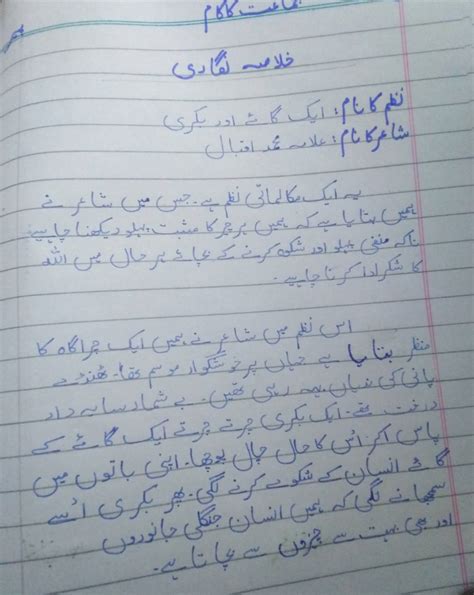 جماعت کا کام
خلاصہ نگاری
نظم کا نام: ایک گائے اور بکری
شاعر کا نام: علامہ محمد اقبال
یہ ایک مکالماتی نظم ہے۔ جس میں شاعر نے
ہمیں بتایا ہے کہ ہمیں ہر چیز کا مثبت پہلو دیکھنا چاہیے
ناکہ منفی پہلو اور شکوہ کرنے کے بجائے ہر حال میں اللہ
کا شکر ادا کرنا چاہیے۔
اس نظم میں شاعر نے ہمیں ایک چراگاہ کا
منظر بتایا ہے جہاں پر خوشگوار موسم تھا۔ ٹھنڈے
پانی کی ندیاں بہہ رہی تھیں۔ بے شمار سایہ دار
درخت تھے۔ ایک بکری چرتے چرتے ایک گائے کے
پاس آکر اُس کا حال چال پوچھا۔ اپنی باتوں میں
گائے انسان کے شکوے کرنے لگی۔ پھر بکری اُسے
سمجھانے لگی کہ ہمیں انسان جنگلی جانوروں
اور بھی بہت سے چیزوں سے بچاتا ہے۔